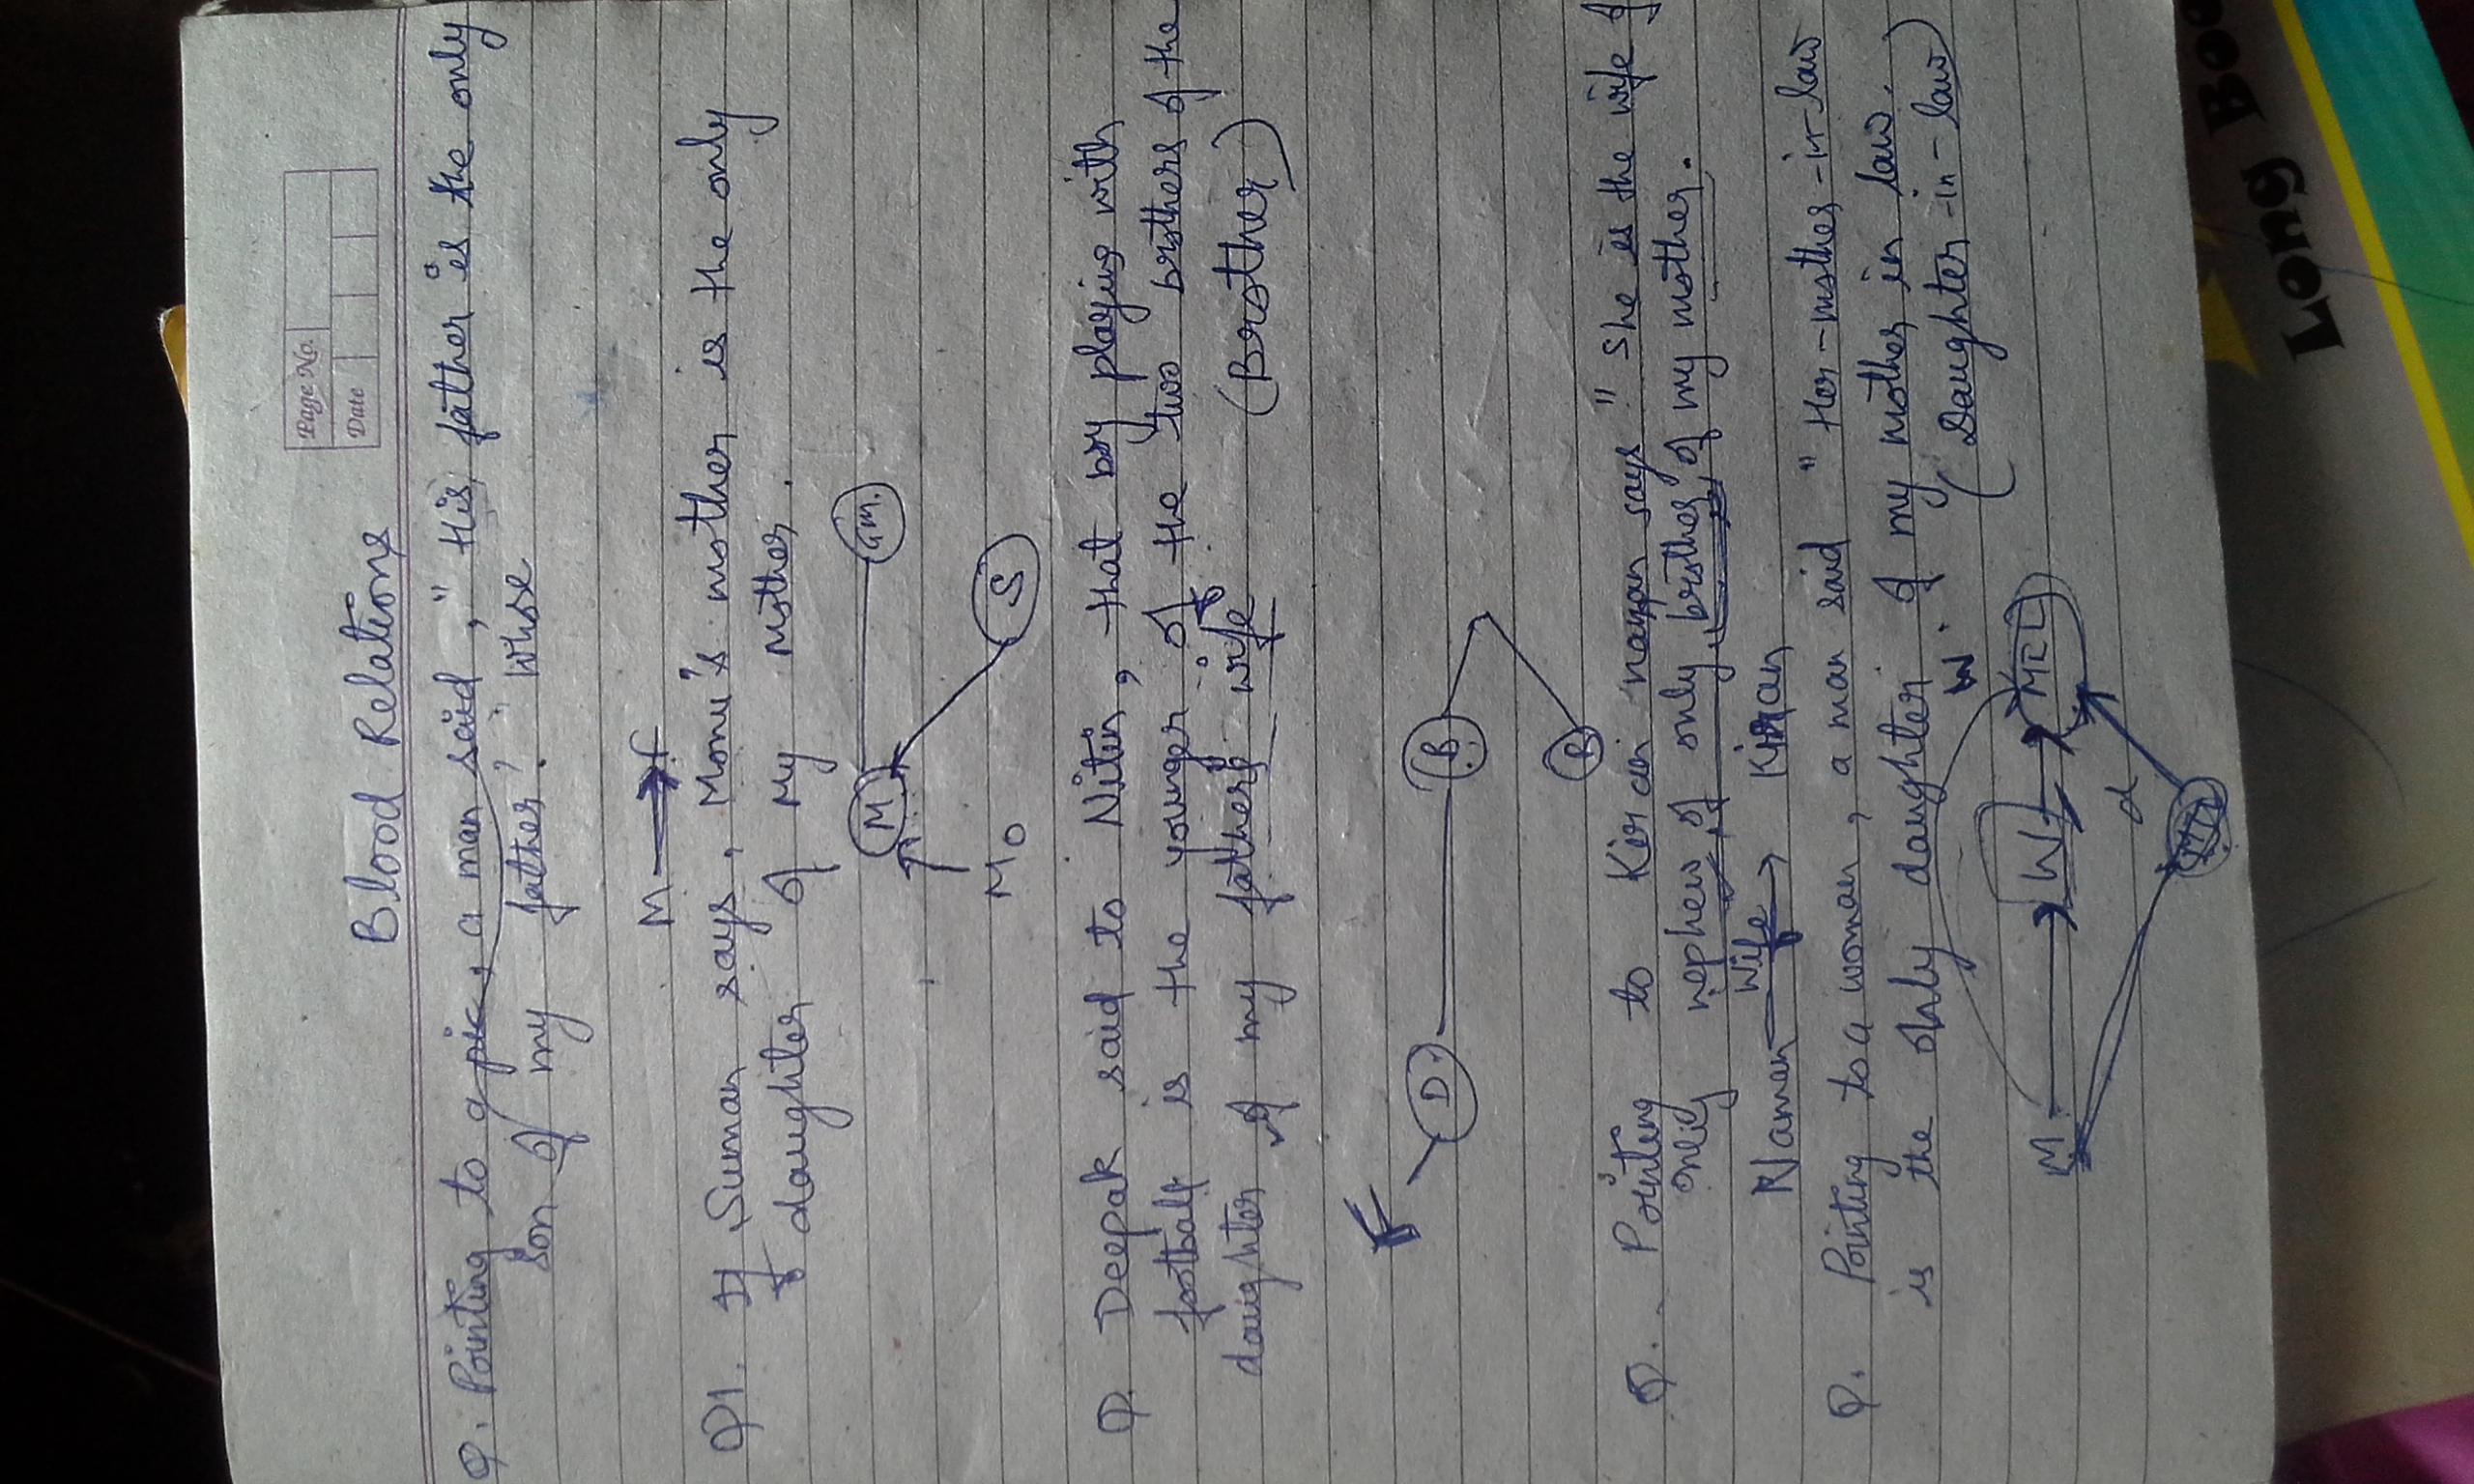 Page No.
Date
Blood Relations
Q. Pointing to a pic, a man said, " His father is the only
son of my father? " Whose
M f
Q1. If Suman says, Monu's mother is the only
daughter of My Mother.
M GM.
Mo S
Q. Deepak said to Nitin, that boy playing with
football is the younger of the two brothers of the
daughter of my father's wife (Brother)
F
D. B
B
Q. Pointing to Kiran naman says " She is the wife of
only nephew of only brother of my mother.
Wife
Naman Kiran
Q. Pointing to a woman, a man said " Her-mother-in-law
is the only daughter of my mother in law.
W (Daughter-in-law)
M. W MIL
d
Long Boo